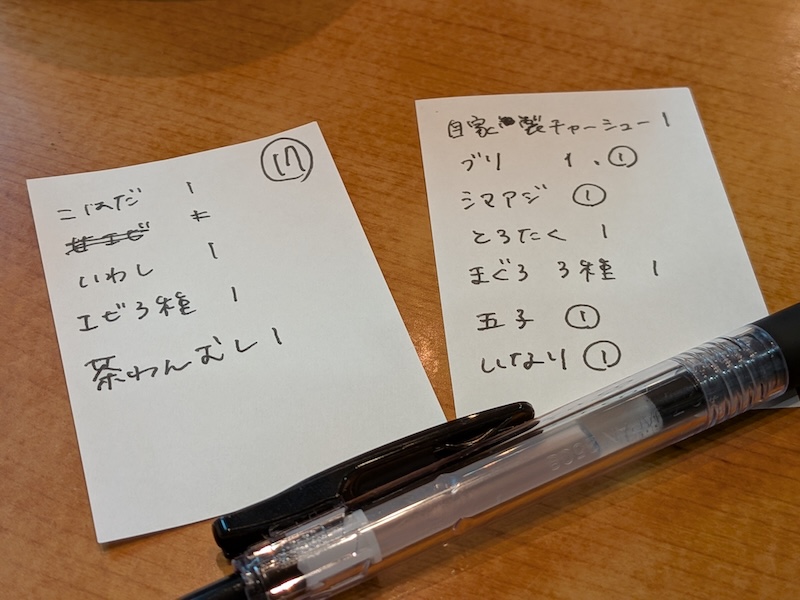 ⑰
こはだ 1
甘エビ
いわし 1
エビ3種 1
茶わんむし 1
自家製チャーシュー 1
ブリ 1、①
シマアジ ①
とろたく 1
まぐろ 3種 1
五子 ①
いなり ①